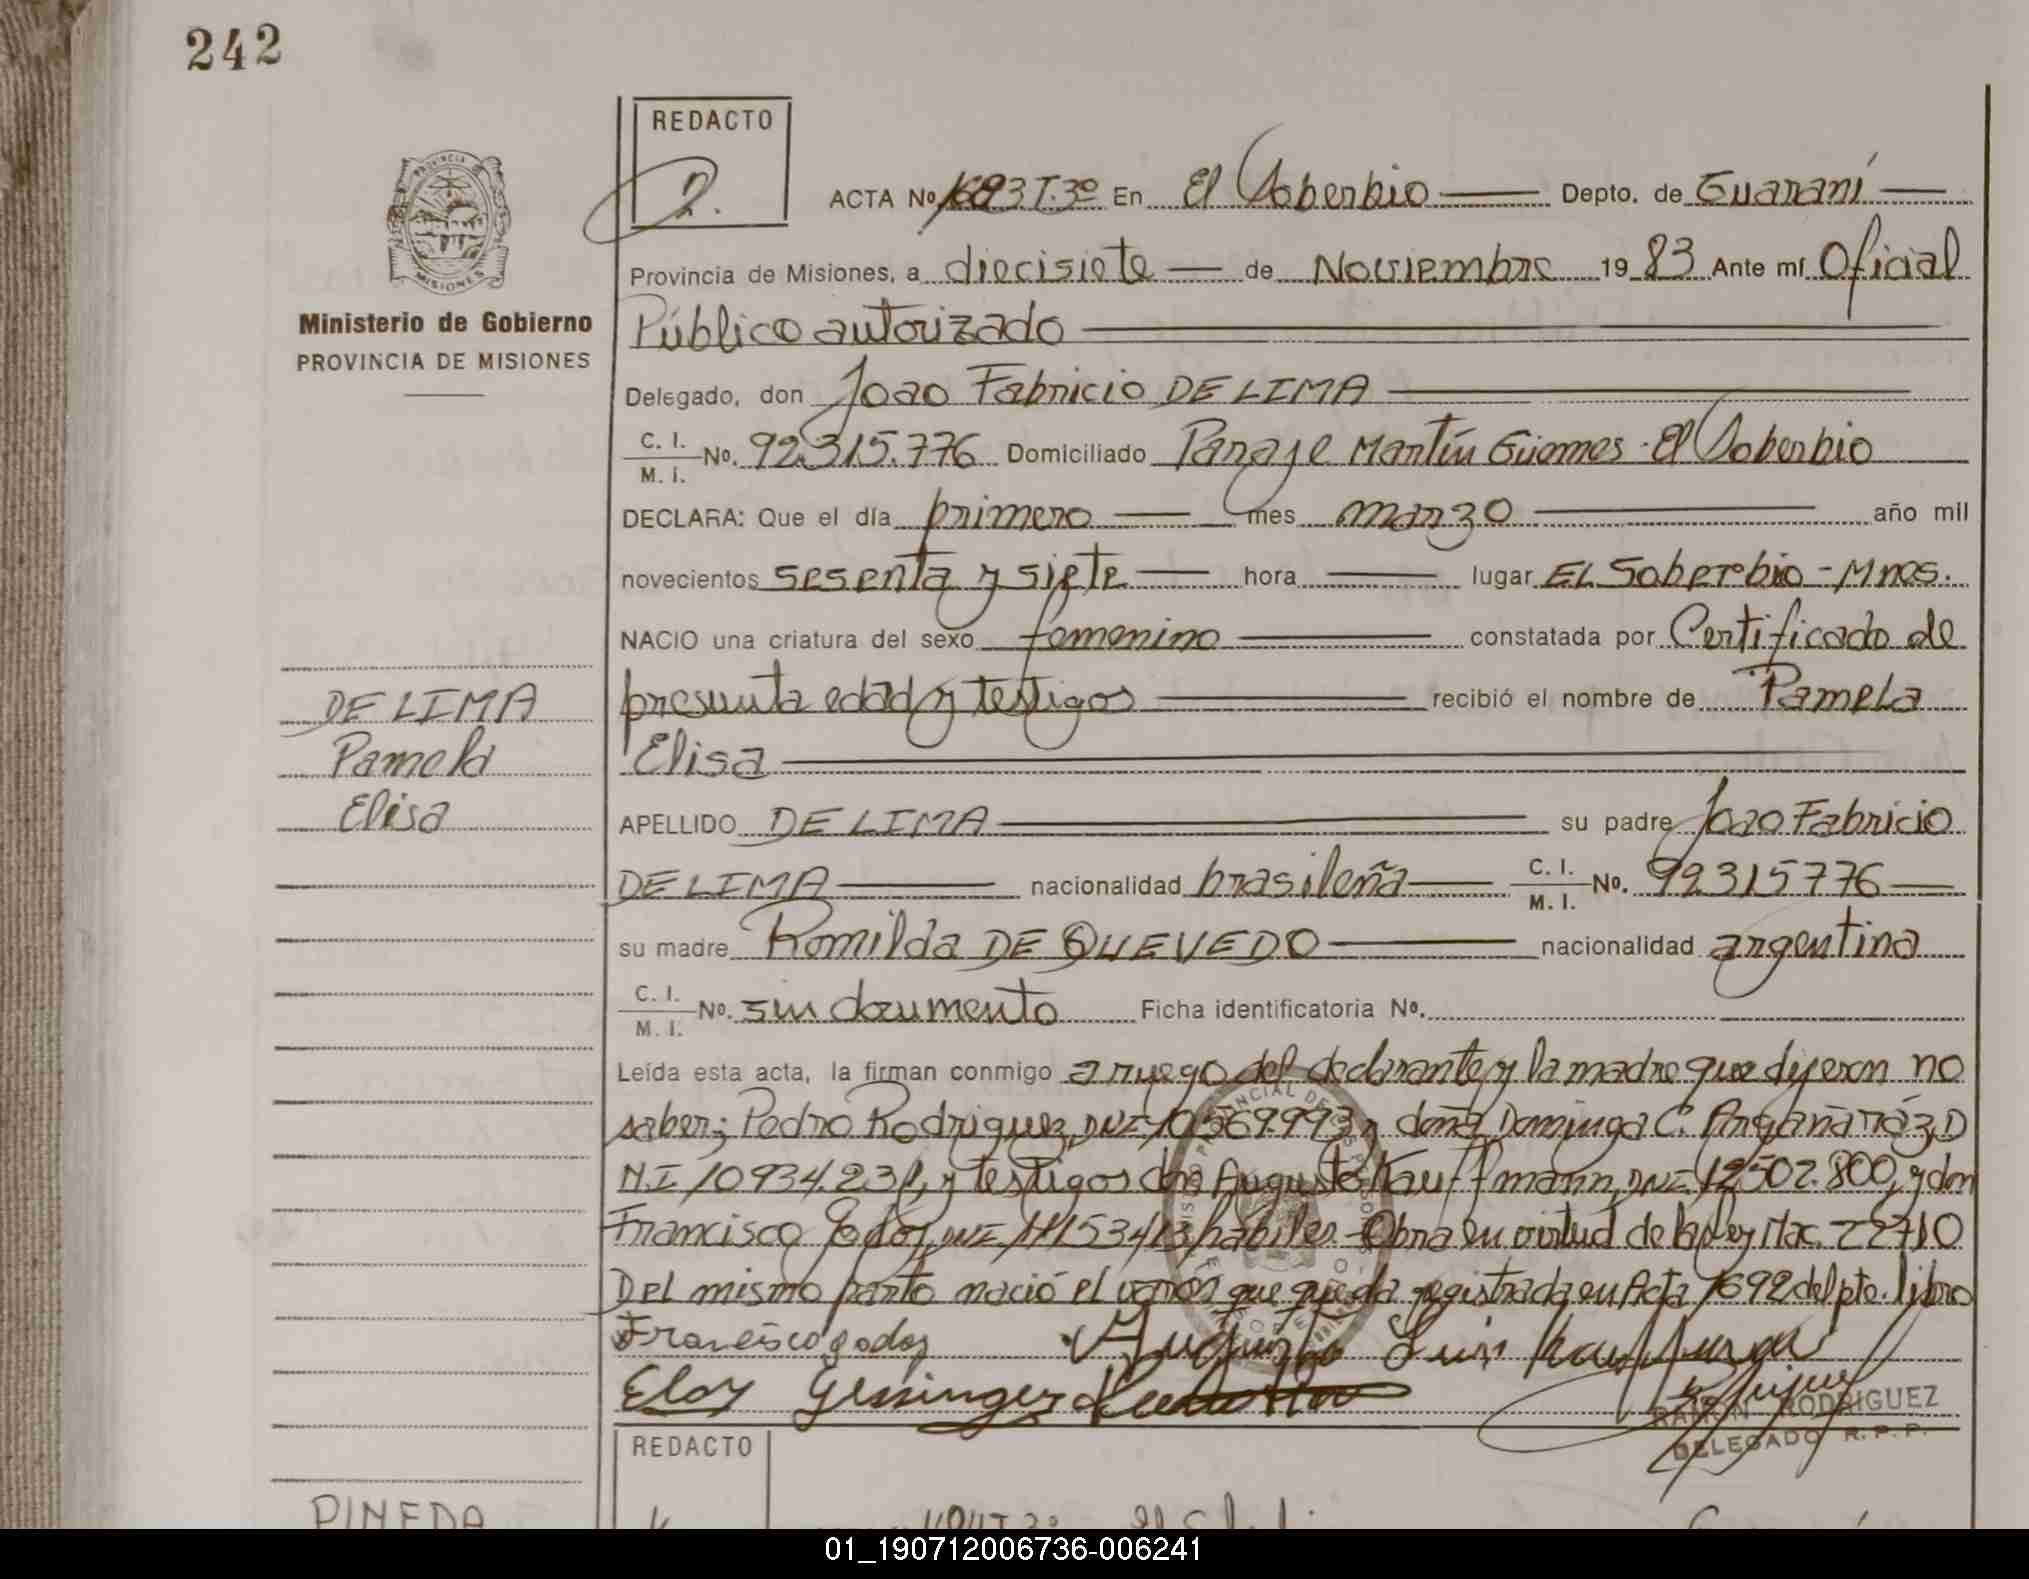 242
REDACTO
2.
ACTA No. 1693 T.3º En El Soberbio Depto. de Guaraní
Provincia de Misiones, a diecisiete de Noviembre 19 83 Ante mí Oficial
Público autorizado
Ministerio de Gobierno
PROVINCIA DE MISIONES
Delegado, don Joao Fabricio DE LIMA
C. I.
M. I.
No. 92.315.776 Domiciliado Paraje Martín Güemes - El Soberbio
DECLARA: Que el día primero mes marzo año mil
novecientos sesenta y siete hora lugar EL Soberbio - Mnes.
NACIO una criatura del sexo femenino constatada por Certificado de
presunta edad y testigos recibió el nombre de Pamela
Elisa
DE LIMA
Pamela
Elisa
APELLIDO DE LIMA su padre Joao Fabricio
DE LIMA nacionalidad brasileña C. I. M. I. No. 92315776
su madre Romilda DE QUEVEDO nacionalidad argentina
C. I.
M. I.
No. sin documento Ficha identificatoria No.
Leída esta acta, la firman conmigo a ruego del declarante y la madre que dijeron no
saber; Pedro Rodriguez, DNI 10569.993 y doña Dominga C. Argañaráz, D
N.I 10934.231, y testigos don Augusto Kauffmann, DNI. 12502.800, y don
Francisco Godoy, DNI hábiles. - Obra en virtud de la Ley Nac. 22710
Del mismo parto nació el varón que queda registrada en Acta 1692 del pte. libro
Francisco godoy Augusto Luis
Eloy
RAMON RODRIGUEZ
DELEGADO R. P. P.
REDACTO
PINEDA
01_190712006736-006241